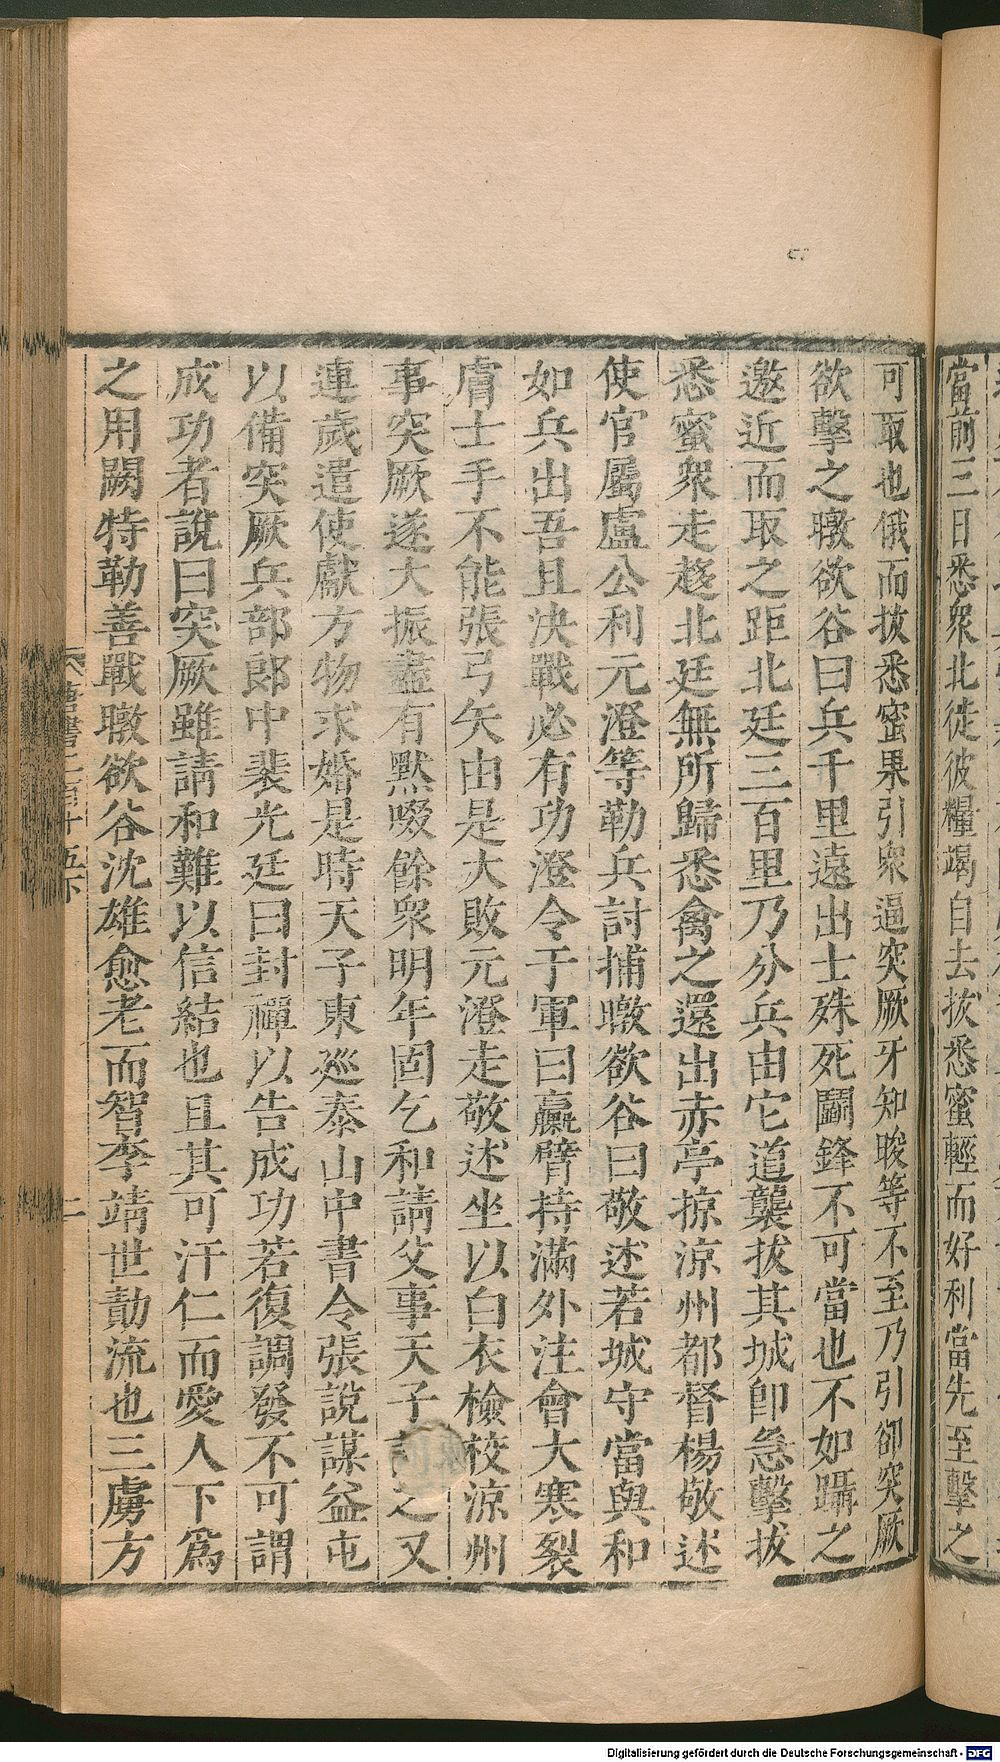 當前三日悉衆北徙彼糧竭自去拔悉蜜輕而好利當先至擊之
可取也俄而拔悉蜜果引衆逼突厥牙知暾等不至乃引卻突厥
欲擊之暾欲谷曰兵千里遠出士殊死鬭鋒不可當也不如躡之
邀近而取之距北廷三百里乃分兵由它道襲拔其城卽急擊拔
悉蜜衆走趍北廷無所歸悉禽之還出赤亭掠涼州都督楊敬述
使官屬盧公利元澄等勒兵討捕暾欲谷曰敬述若城守當與和
如兵出吾且決戰必有功澄令于軍曰臝臂持滿外注會大寒裂
膚士手不能張弓矢由是大敗元澄走敬述坐以白衣檢校涼州
事突厥遂大振盡有默啜餘衆明年固乞和請父事天子之又
連歲遣使獻方物求婚是時天子東巡泰山中書令張說謀益屯
以備突厥兵部郎中裴光廷曰封禪以告成功若復調發不可謂
成功者說曰突厥雖請和難以信結也且其可汗仁而愛人下爲
之用闕特勒善戰暾欲谷沈雄愈老而智李靖世勣流也三虜方
唐書二百十五下
Digitalisierung gefördert durch die Deutsche Forschungsgemeinschaft - DFG